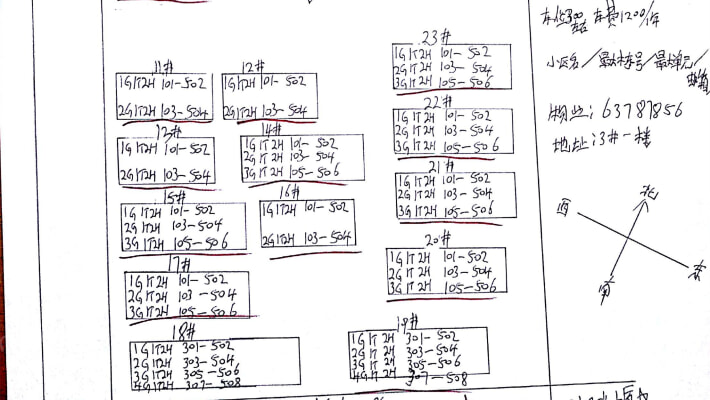 11#
1G1T2H 101-502
2G1T2H 103-504
12#
1G1T2H 101-502
2G1T2H 103-504
13#
1G1T2H 101-502
2G1T2H 103-504
14#
1G1T2H 101-502
2G1T2H 103-504
3G1T2H 105-506
15#
1G1T2H 101-502
2G1T2H 103-504
3G1T2H 105-506
16#
1G1T2H 101-502
2G1T2H 103-504
17#
1G1T2H 101-502
2G1T2H 103-504
3G1T2H 105-506
18#
1G1T2H 301-502
2G1T2H 303-504
3G1T2H 305-506
4G1T2H 307-508
23#
1G1T2H 101-502
2G1T2H 103-504
3G1T2H 105-506
22#
1G1T2H 101-502
2G1T2H 103-504
3G1T2H 105-506
21#
1G1T2H 101-502
2G1T2H 103-504
3G1T2H 105-506
20#
1G1T2H 101-502
2G1T2H 103-504
3G1T2H 105-506
19#
1G1T2H 301-502
2G1T2H 303-504
3G1T2H 305-506
4G1T2H 307-508
车位300 车费1200/年
小区名/最大栋号/最大单元/
物业:63787856
地址:3#一楼
北
西
东
南